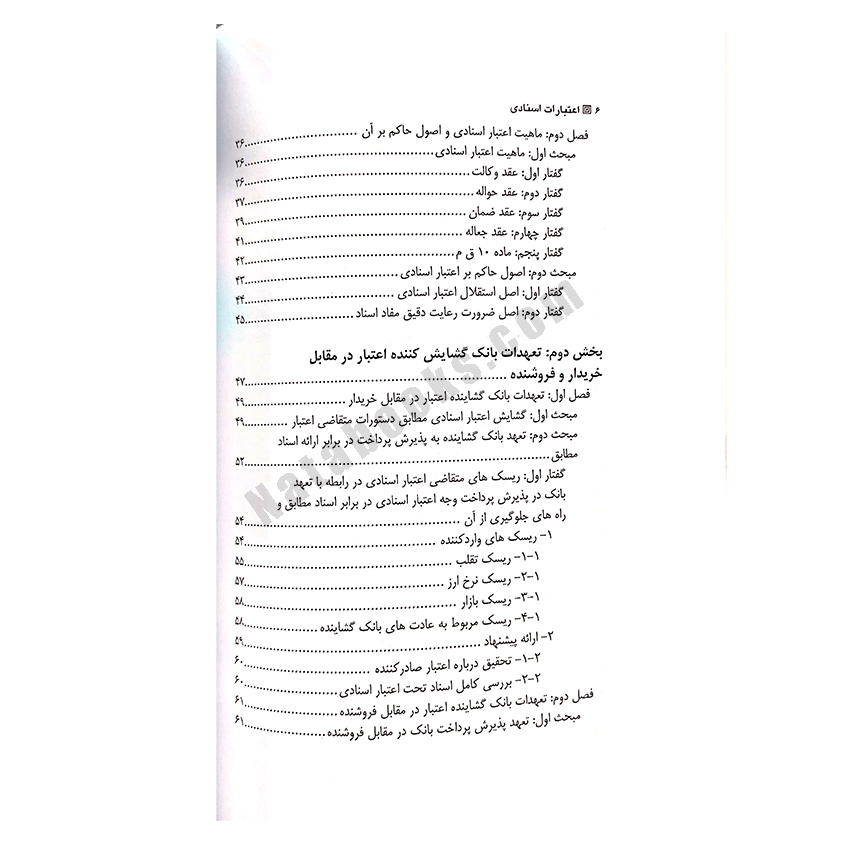 ۶ اعتبارات اسنادی
فصل دوم: ماهیت اعتبار اسنادی و اصول حاکم بر آن ................................ ۳۶
مبحث اول: ماهیت اعتبار اسنادی ................................ ۳۶
گفتار اول: عقد وکالت ................................ ۳۶
گفتار دوم: عقد حواله ................................ ۳۷
گفتار سوم: عقد ضمان ................................ ۳۹
گفتار چهارم: عقد جعاله ................................ ۴۱
گفتار پنجم: ماده ۱۰ ق م ................................ ۴۲
مبحث دوم: اصول حاکم بر اعتبار اسنادی ................................ ۴۳
گفتار اول: اصل استقلال اعتبار اسنادی ................................ ۴۴
گفتار دوم: اصل ضرورت رعایت دقیق مفاد اسناد ................................ ۴۵
بخش دوم: تعهدات بانک گشایش کننده اعتبار در مقابل
خریدار و فروشنده ................................ ۴۷
فصل اول: تعهدات بانک گشاینده اعتبار در مقابل خریدار ................................ ۴۹
مبحث اول: گشایش اعتبار اسنادی مطابق دستورات متقاضی اعتبار ............ ۴۹
مبحث دوم: تعهد بانک گشاینده به پذیرش پرداخت در برابر ارائه اسناد
مطابق ................................ ۵۲
گفتار اول: ریسک های متقاضی اعتبار اسنادی در رابطه با تعهد
بانک در پذیرش پرداخت وجه اعتبار اسنادی در برابر اسناد مطابق و
راه های جلوگیری از آن ................................ ۵۴
۱- ریسک های واردکننده ................................ ۵۴
۱-۱- ریسک تقلب ................................ ۵۵
۱-۲- ریسک نرخ ارز ................................ ۵۷
۱-۳- ریسک بازار ................................ ۵۸
۱-۴- ریسک مربوط به عادت های بانک گشاینده ................................ ۵۸
۲- ارائه پیشنهاد ................................ ۵۹
۲-۱- تحقیق درباره اعتبار صادرکننده ................................ ۶۰
۲-۲- بررسی کامل اسناد تحت اعتبار اسنادی ................................ ۶۰
فصل دوم: تعهدات بانک گشاینده اعتبار در مقابل فروشنده ................................ ۶۱
مبحث اول: تعهد پذیرش پرداخت بانک در مقابل فروشنده ................................ ۶۱
Natabooks.com